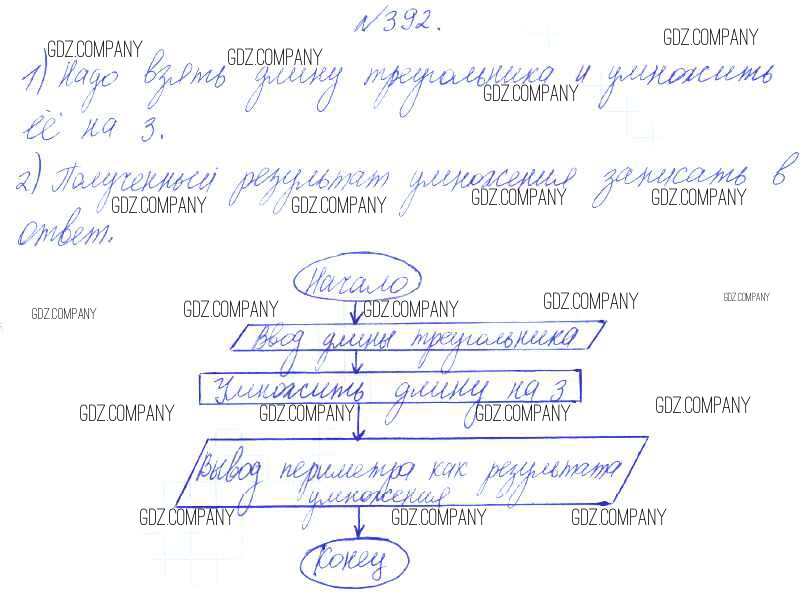 №392.
GDZ.COMPANY GDZ.COMPANY GDZ.COMPANY
1) Надо взять длину треугольника и умножить
GDZ.COMPANY
её на 3.
2) Полученный результат умножения записать в
GDZ.COMPANY GDZ.COMPANY GDZ.COMPANY GDZ.COMPANY
ответ.
Начало
GDZ.COMPANY GDZ.COMPANY GDZ.COMPANY GDZ.COMPANY GDZ.COMPANY
Ввод длины треугольника
Умножить длину на 3
GDZ.COMPANY GDZ.COMPANY GDZ.COMPANY GDZ.COMPANY
Вывод периметра как результата
умножения
GDZ.COMPANY GDZ.COMPANY GDZ.COMPANY
Конец